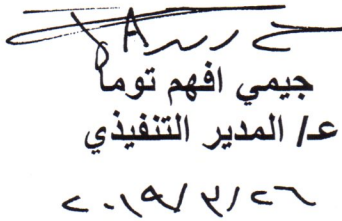 جيمي افهم توما
عـ/ المدير التنفيذي
٢٠١٩/٣/٢٦